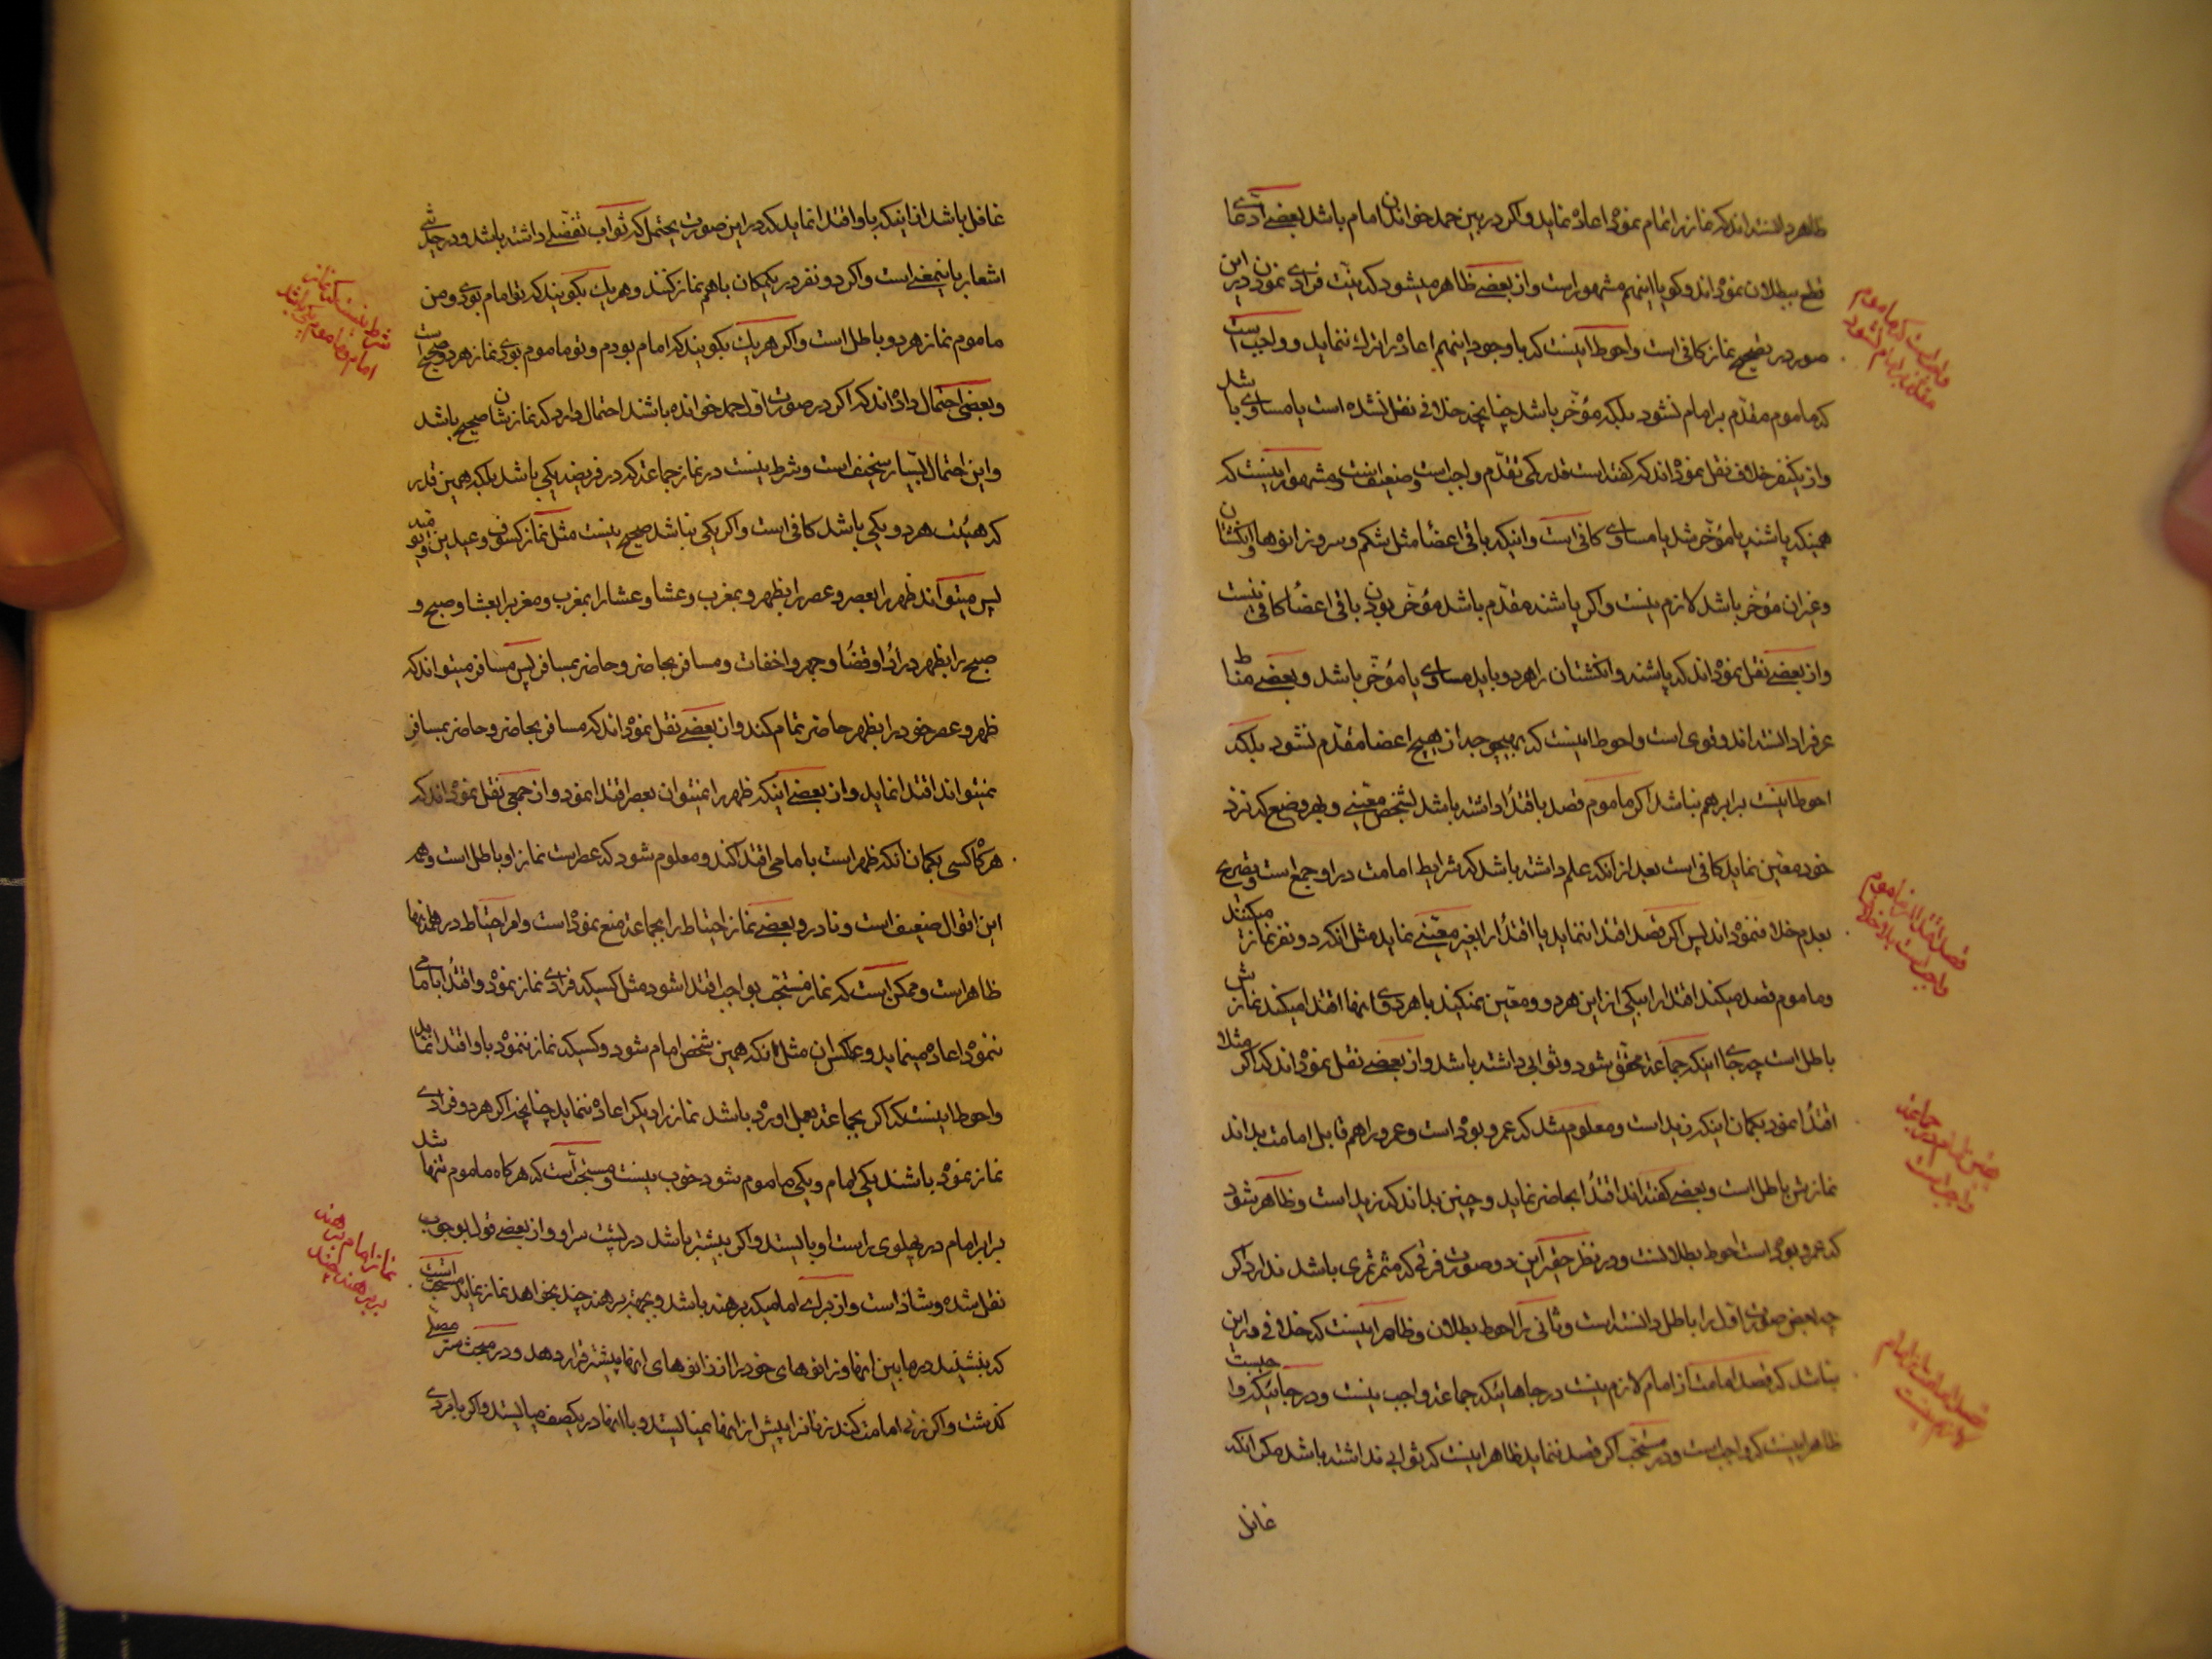 ظاهر دانسته‌اند که نماز را تمام نموده اعاده نماید و اکر در بین حمد خواندن امام باشد بعضے ادعای
قطع ببطلان نموده‌اند و کویا اینهم مشهور است و از بعضے ظاهر میشود که نیت فرادی نمودن در این
صور در تصحیح نماز کافی است و احوط اینست که باوجود اینهم اعاده را ترک ننماید و واجب است
که ماموم مقدّم بر امام نشود بلکه مؤخر باشد چنانچه خلافی نقل نشده است یا مساوی باشد
و از یکنفر خلاف نقل نموده‌اند که کفته است قدر کمی تقدّم واجب است و ضعیف است و مشهور اینست که
همینکه پاشنه یا مؤخر شد یا مساوی کافی است و اینکه باقی اعضا مثل شکم و سر و زانوها و انکشتان
و غیر ان مؤخر باشد لازم نیست و اکر پاشنه مقدّم باشد مؤخر بودن باقی اعضا کافی نیست
و از بعضے نقل نموده‌اند که پاشنه و انکشتان را هر دو باید مساوی یا مؤخر باشد و بعضے مناط
عرف را دانسته‌اند و قوی است و احوط اینست که بهیچوجه از هیچ اعضا مقدّم نشود بلکه
احوط اینست برابر هم نباشد اکر ماموم قصد باقتدا داشته باشد لشخص معیّنے و بهر وضع که نزد
خود معیّن نماید کافی است بعد از انکه علم داشته باشد که شرایط امامت در او جمع است و تصریح
بعدم خلاف نموده‌اند پس اکر قصد اقتدا ننماید یا اقتدا را بغیر معیّنے نماید مثل انکه دو نفر نماز میکنند
و ماموم قصد میکند اقتدا را بیکی از این هر دو و معیّن نمیکند یا هر دوی انها اقتدا میکند نمازش
باطل است چه جای اینکه جماعة محقق شود و ثوابی داشته باشد و از بعضے نقل نموده‌اند که اکر مثلا
اقتدا نمود بکمان اینکه زید است و معلوم شد که عمرو بوده است و عمرو را هم قابل امامت بداند
نمازش باطل است و بعضے کفته‌اند اقتدا بحاضر نماید و چنین بداند که زید است و ظاهر شود
که عمرو بوده است احوط بطلانست و در نظر حقیر این دو صورت فرقی که مثمر ثمری باشد ندارد اکر
چه بعض صورت اول را باطل دانسته است و ثانی را احوط بطلان و ظاهر اینست که خلافی در این
نباشد که قصد امامت از امام لازم نیست در جاهائیکه جماعة واجب نیست و در جائیکه واجبست
ظاهر اینست که واجب است و در مستحب اکر قصد ننماید ظاهر اینست که ثوابی نداشته باشد مکر انکه
غافل
واجب است که ماموم
مقدّم بر امام نشود
قصد اقتدا از ماموم
واجب است بلا خلاف
قصد امامت از امام
لازم نیست
غافل باشد از اینکه باو اقتدا نماید که در این صورت یحتمل که ثواب تفضّلی داشته باشد و در حدیثی
اشعار باینمعنی است و اکر دو نفر در یکمکان با هم نماز کنند و هر یک بکویند که تو امام بودی و من
ماموم نماز هر دو باطل است و اکر هر یک بکویند که امام بودم و تو ماموم بودی نماز هر دو صحیح است
و بعضی احتمال داده‌اند که اکر در صورت اول حمد خوانده باشند احتمال دارد که نماز شان صحیح باشد
و این احتمال بسیار سخیف است و شرط نیست در نماز جماعة که در فریضه یکی باشد بلکه همین قدر
که هیئت هر دو یکی باشد کافی است و اکر یکی نباشد صحیح نیست مثل نماز کسوف و عیدین و یومیه
پس میتواند ظهر را بعصر و عصر را بظهر و بمغرب و عشا و عشا را بمغرب و مغرب را بعشا و صبح و
صبح را بظهر در ادا و قضا و جهر و اخفات و مسافر بحاضر و حاضر بمسافر پس مسافر میتواند که
ظهر و عصر خود را بظهر حاضر تمام کند و از بعضے نقل نموده‌اند که مسافر بحاضر و حاضر بمسافر
نمیتواند اقتدا نماید و از بعضے اینکه ظهر را نمیتوان بعصر اقتدا نمود و از جمعی نقل نموده‌اند که
هرکاه کسی بکمان انکه ظهر است بامامی اقتدا کند و معلوم شود که عصر است نماز او باطل است و همه
این اقوال ضعیف است و نادر و بعضے نماز احتیاط را بجماعة منع نموده است و امر احتیاط در همه انها
ظاهر است و ممکن است که نماز مستحب بواجب اقتدا شود مثل کسیکه فرادی نماز نموده و اقتدا بامامی
ننموده اعاده مینماید و عکس ان مثل انکه همین شخص امام شود و کسیکه نماز ننموده باو اقتدا نماید
و احوط اینست که اکر بجماعة بعمل اورده باشد نماز را دیکر اعاده ننماید چنانچه اکر هر دو فرادی
نماز نموده باشند یکی امام و یکی ماموم شود خوب نیست و مستحب است که هرکاه ماموم تنها باشد
برابر امام در پهلوی راست او بایستد و اکر بیشتر باشد در پشت سر او و از بعضے قول بوجوب
نقل شده و شاذ است و از برای امامیکه برهنه باشد و بجهة برهنه چند بخواهد نماز نماید مستحب است
که بنشیند در مابین انها و زانوهای خود را از زانوهای انها پیشتر قرار دهد و در مبحث ستر مصلی
کذشت و اکر زنی امامت کند زنانرا پیش از انها نمیایستد و با انها در یکصف میایستد و اکر با مردی
نماز امام برهنه
بر برهنه چند